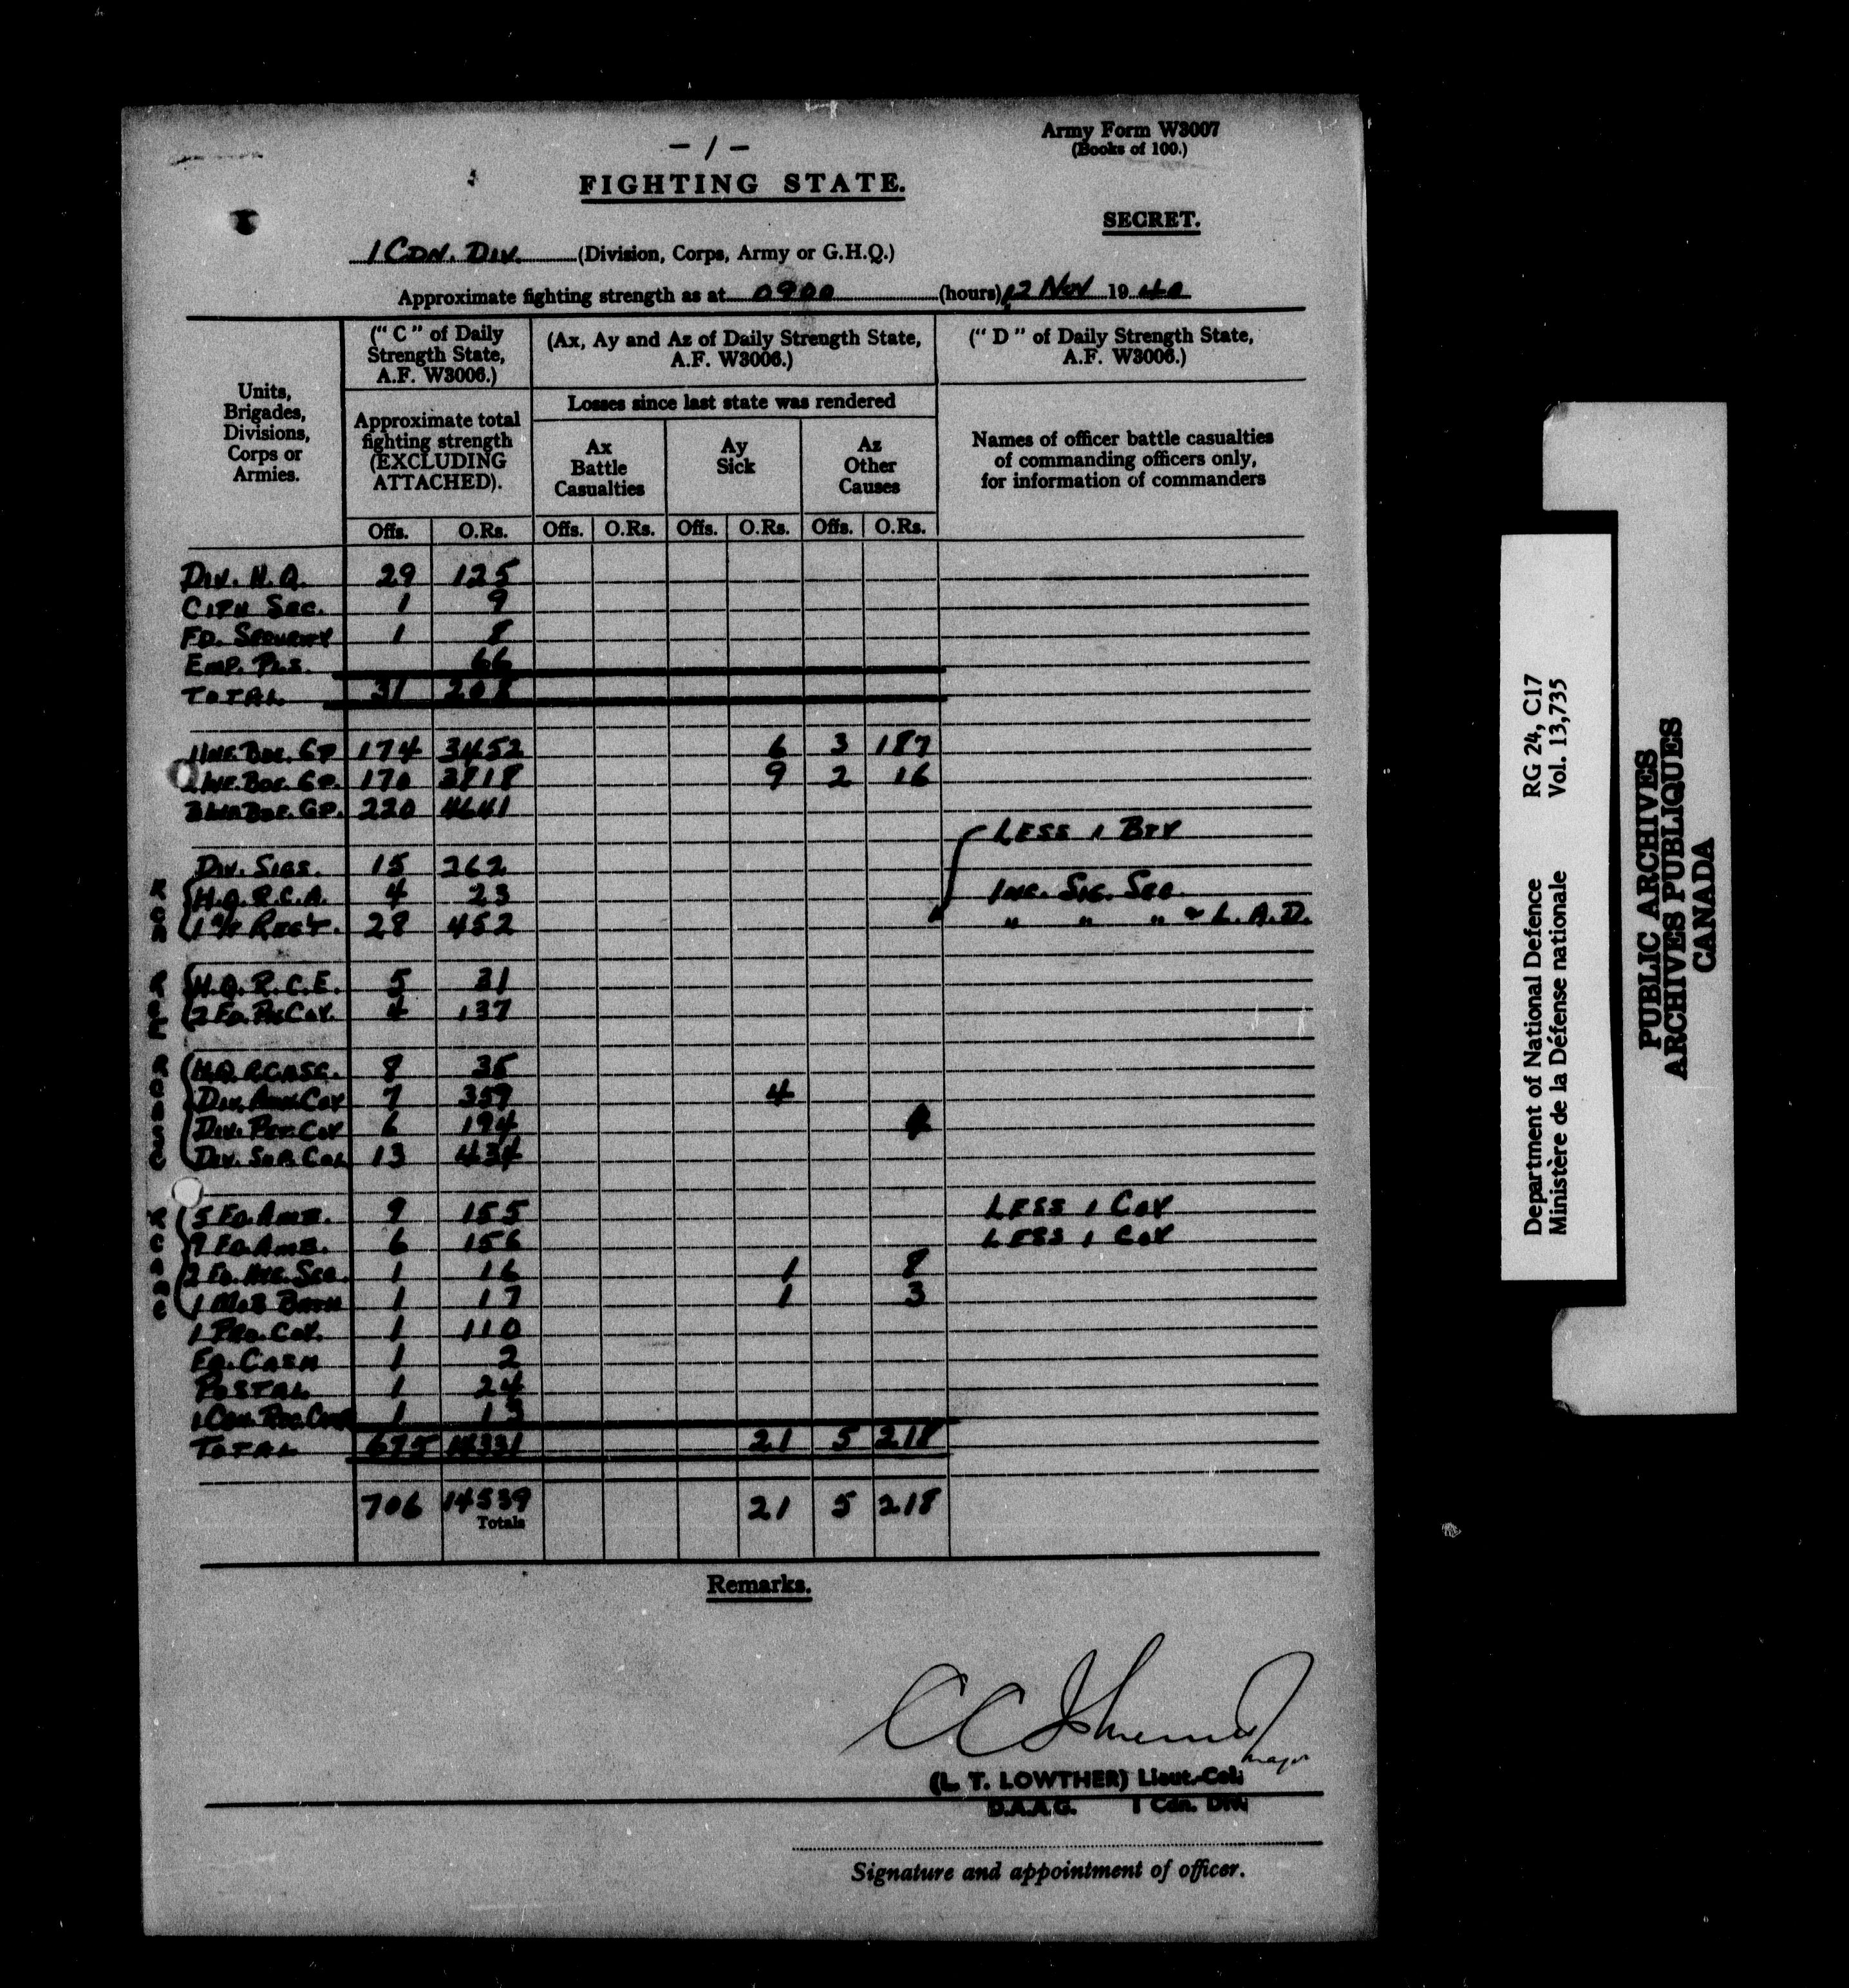 - 1 -
Army Form W3007
(Books of 100.)
FIGHTING STATE.
SECRET.
1 CDN. DIV. (Division, Corps, Army or G.H.Q.)
Approximate fighting strength as at 0900 (hours) 12 Nov 1940
Units, Brigades, Divisions, Corps or Armies.
("C" of Daily Strength State, A.F. W3006.)
(Ax, Ay and Az of Daily Strength State, A.F. W3006.)
("D" of Daily Strength State, A.F. W3006.)
Approximate total fighting strength (EXCLUDING ATTACHED).
Losses since last state was rendered
Names of officer battle casualties of commanding officers only, for information of commanders
Ax Battle Casualties
Ay Sick
Az Other Causes
Offs. O.Rs. Offs. O.Rs. Offs. O.Rs. Offs. O.Rs.
DIV. H.Q. 29 125
CIPH SEC. 1 9
FD. SECURITY 1 8
EMP. PLS. 66
TOTAL 31 208
1 INF. BDE. GP 174 3452 6 3 187
2 INF. BDE. GP. 170 3718 9 2 16
3 INF. BDE. GP. 220 4641
LESS 1 BTY
DIV. SIGS. 15 262
R C A
H.Q. R.C.A. 4 23 INC. SIG. SEC.
1 A/T REGT. 28 452 " " " & L.A.D.
R C E
H.Q. R.C.E. 5 31
2 FD. PK COY. 4 137
R C A S C
H.Q. RCASC. 8 35
DIV. AMN COY 7 359 4
DIV. PET. COY 6 194 4
DIV. SUP. COL 13 434
R C A M C
5 FD. AMB. 9 155 LESS 1 COY
9 FD. AMB. 6 156 LESS 1 COY
2 FD. HYG. SEC. 1 16 1 8
1 MOB BATH 1 17 1 3
1 PRO. COY. 1 110
FD. CASH 1 2
POSTAL 1 24
1 CDN. 1 13
TOTAL 675 14331 21 5 218
706 14539 21 5 218
Totals
Remarks.
Major
(L. T. LOWTHER) Lieut.-Col.
D.A.A.G. 1 Cdn. Div.
Signature and appointment of officer.
Department of National Defence RG 24, C17
Ministère de la Défense nationale Vol. 13,735
PUBLIC ARCHIVES
ARCHIVES PUBLIQUES
CANADA